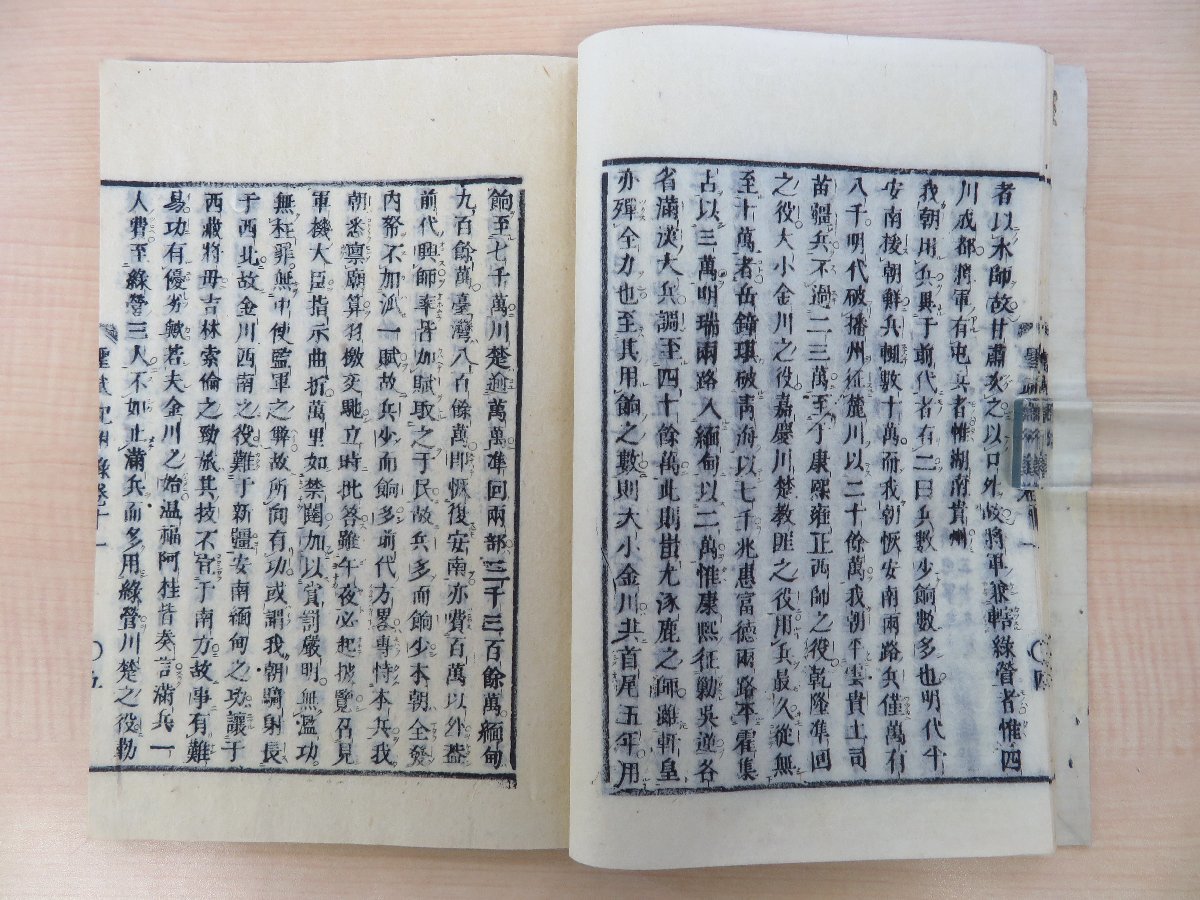 者以水師故甘肅次之以口外故將軍兼轄綠營者惟四
川成都將軍有屯兵者惟湖南貴州
我朝用兵異于前代者有二曰兵數少餉數多也明代平
安南撥朝鮮兵輒數十萬而我朝恢安南兩路兵僅萬有
八千明代破播州征麓川以二十餘萬我朝平雲貴土司
苗疆兵不過二三萬至于康熙雍正西師之役乾隆準回
之役大小金川之役嘉慶川楚教匪之役用兵最久從無
至十萬者岳鍾琪破靑海以七千兆惠富德兩路平霍集
占以三萬明瑞兩路入緬甸以二萬惟康熙征勦吳逆各
省滿漢大兵調至四十餘萬此則蚩尤涿鹿之師雖軒皇
亦殫全力也至其用餉之數則大小金川共首尾五年用
餉至七千萬川楚逾萬萬準回兩部三千三百餘萬緬甸
九百餘萬臺灣八百餘萬卽恢復安南亦費百萬以外蓋
前代興師率皆加賦取之于民故兵多而餉少本朝全發
內帑不加派一賦故兵少而餉多前代方畧專恃本兵我
朝悉稟廟算羽檄交馳立時批答雖午夜必起披覽召見
軍機大臣指示曲折萬里如禁闥加以賞罰嚴明無濫功
無枉罪無中使監軍之弊故所向有功或謂我朝騎射長
于西北故金川西南之役難于新疆安南緬甸之功讓于
西藏將毋吉林索倫之勁旅其技不宜于南方故事有難
易功有優劣歟若夫金川之始温福阿桂皆奏言滿兵一
人費至綠營三人不如止滿兵而多用綠營川楚之役勒
聖武記附錄卷十一
〇五
〇四